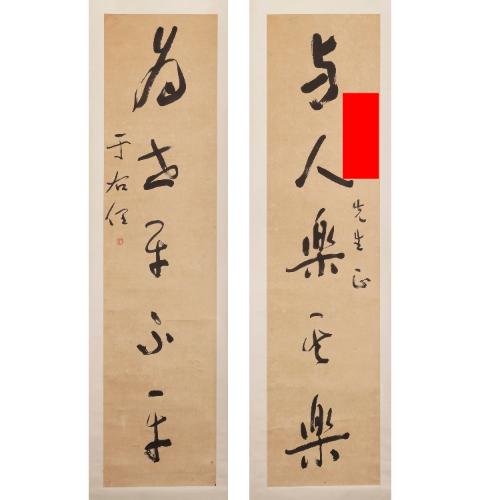 与人樂其樂
先生正
為世平不平
于右任